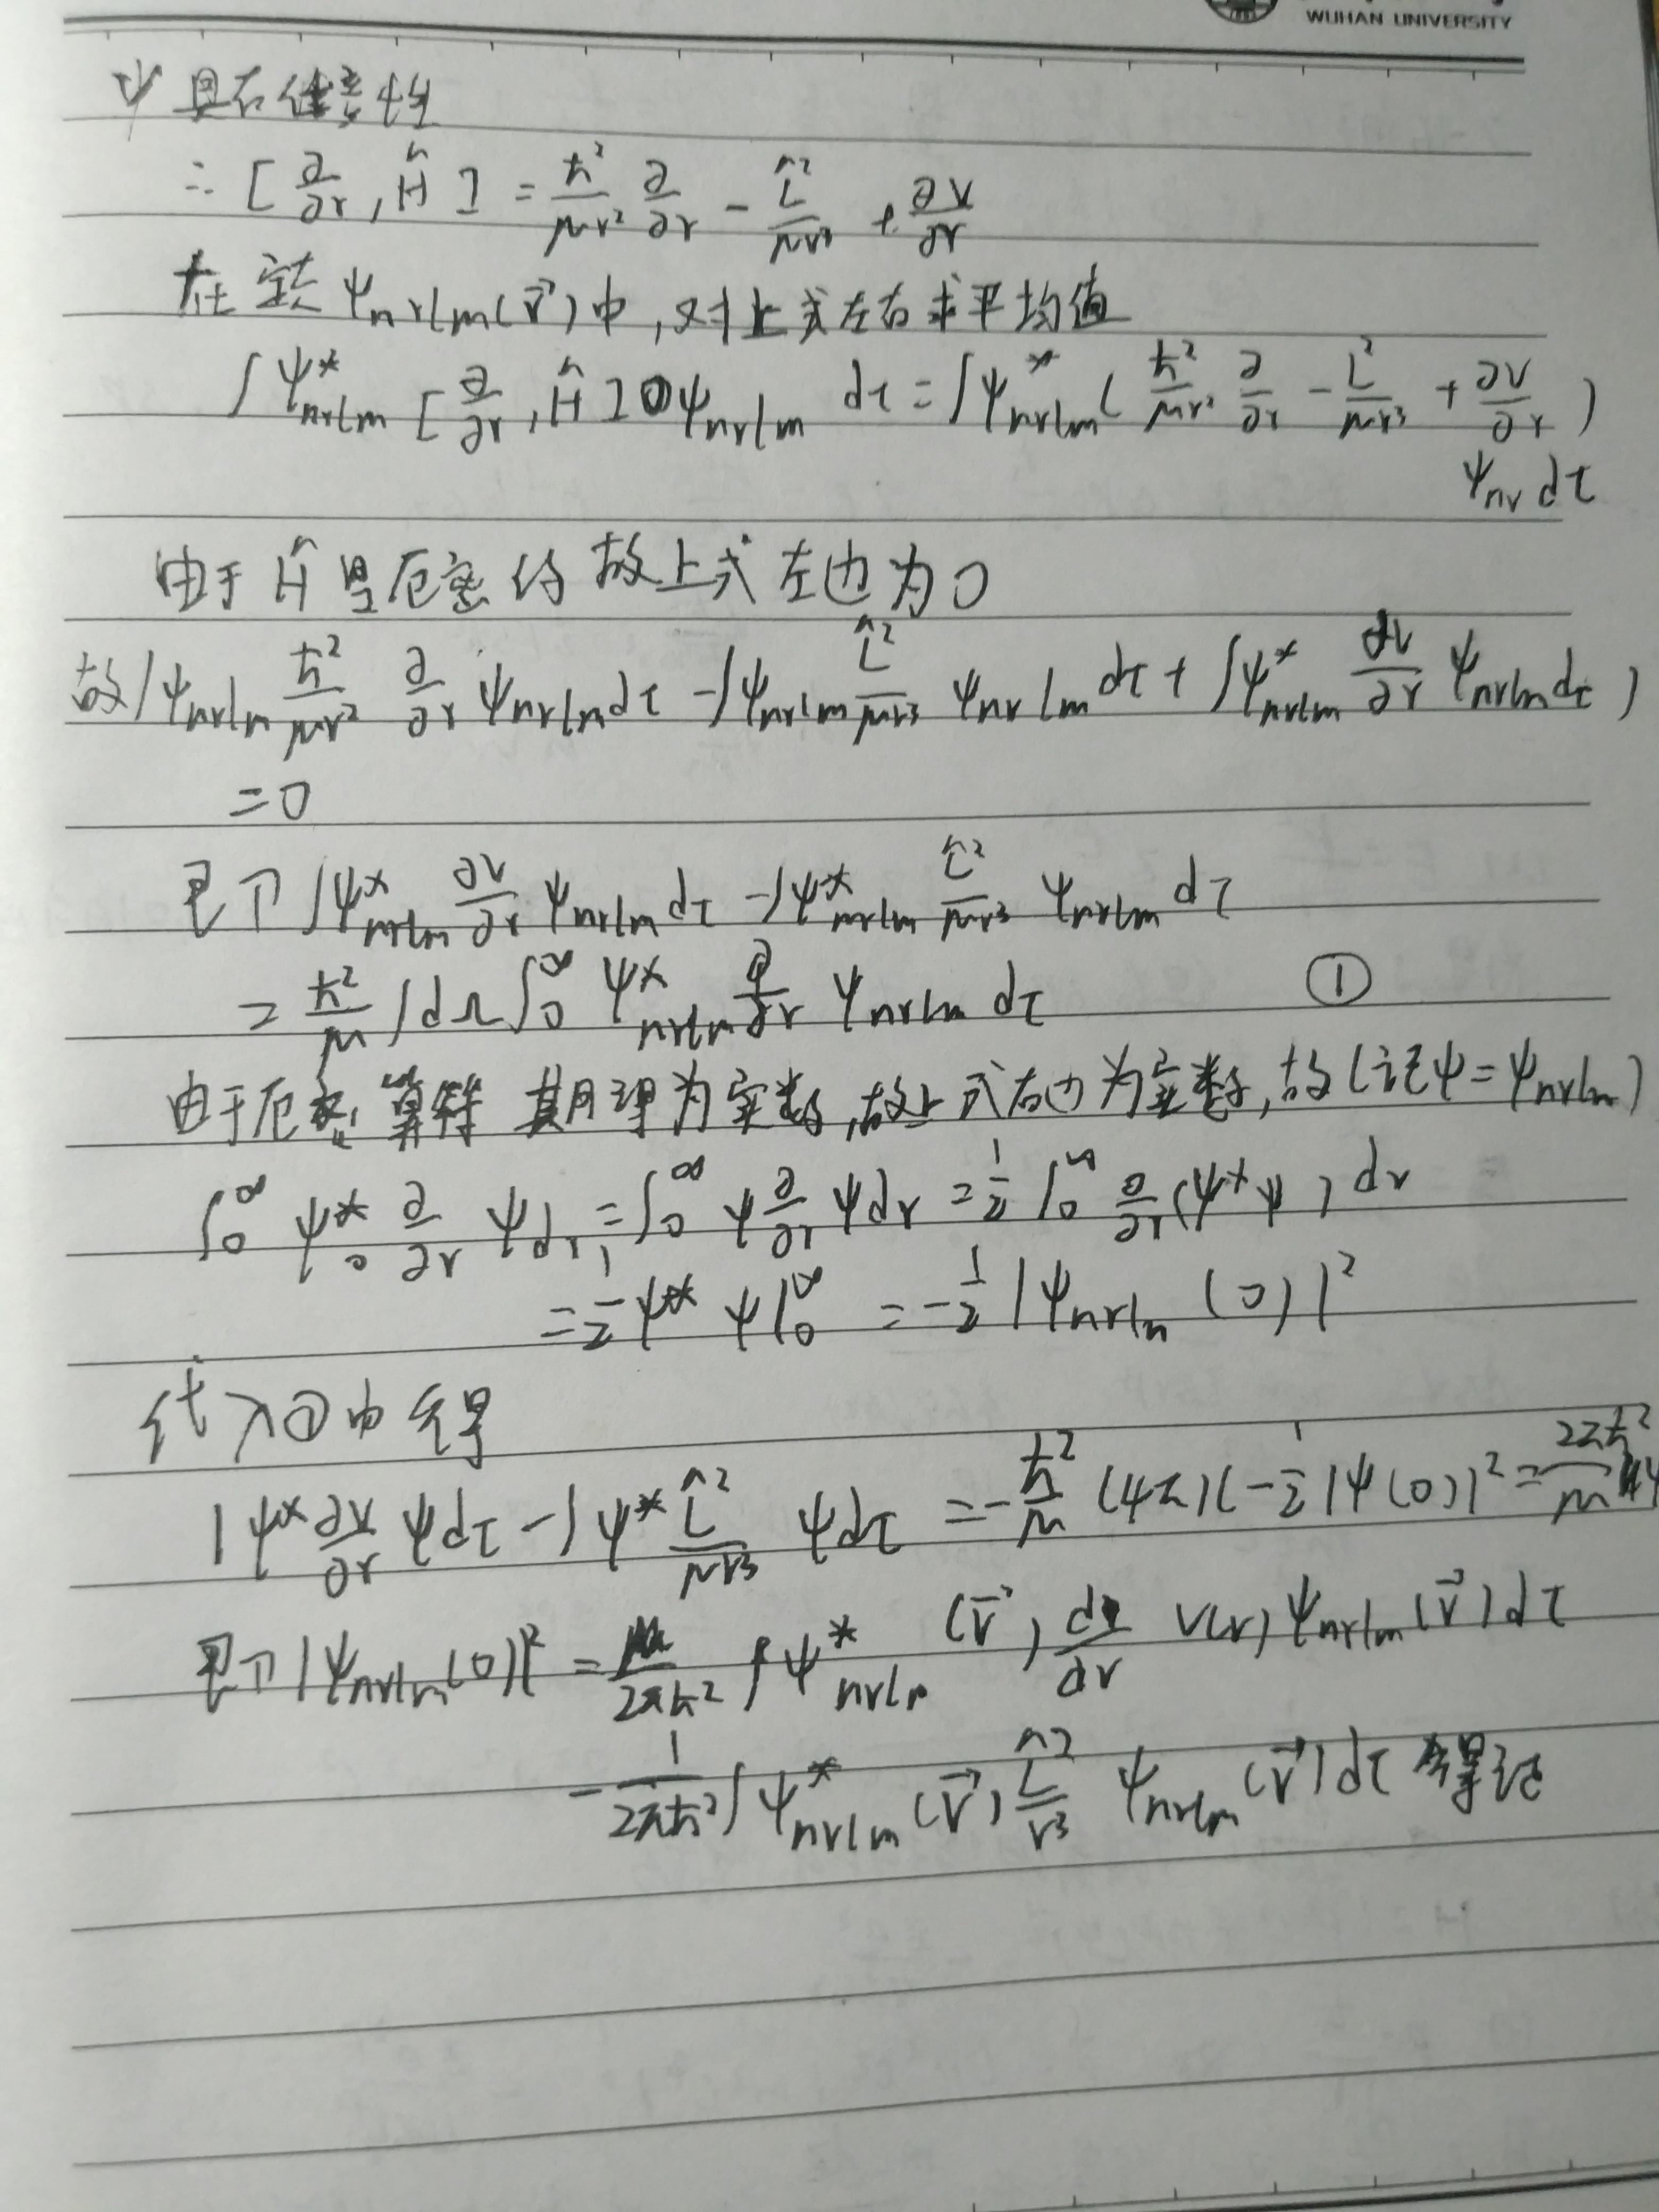 WUHAN UNIVERSITY
ψ具有任意性
∴ [∂/∂r, Ĥ] = ħ²/μr² ∂/∂r - L̂²/μr³ + ∂V/∂r
在定态ψnrlm(r⃗)中,对上式左右求平均值
∫ψ*nrlm [∂/∂r, Ĥ] ψnrlm dτ = ∫ψ*nrlm (ħ²/μr² ∂/∂r - L²/μr³ + ∂V/∂r)
ψnr dτ
由于Ĥ是厄密的 故上式左边为0
故∫ψnrlm ħ²/μr² ∂/∂r ψnrlm dτ - ∫ψnrlm L̂²/μr³ ψnrlm dτ + ∫ψ*nrlm ∂V/∂r ψnrlm dτ)
=0
即 ∫ψ*nrlm ∂V/∂r ψnrlm dτ - ∫ψ*nrlm L̂²/μr³ ψnrlm dτ
= ħ²/μ ∫dΩ∫₀^∞ ψ*nrlm ∂/∂r ψnrlm dτ ①
由于厄密 算符 其 为实数,故上式右边为实数,故(记ψ=ψnrlm)
∫₀^∞ ψ* ∂/∂r ψdr = ∫₀^∞ ψ ∂/∂r ψdr = 1/2 ∫₀^∞ ∂/∂r (ψ*ψ) dr
= 1/2 ψ*ψ|₀^∞ = -1/2 |ψnrlm(0)|²
代入①中 得
∫ψ* ∂V/∂r ψdτ - ∫ψ* L̂²/μr³ ψdτ = -ħ²/μ (4π)(-1/2 |ψ(0)|² = 2πħ²/μ
即 |ψnrlm(0)|² = μ/2πħ² ∫ψ*nrlm (r⃗) d/dr V(r) ψnrlm(r⃗)dτ
- 1/2πħ² ∫ψ*nrlm(r⃗) L̂²/r³ ψnrlm(r⃗)dτ 得证